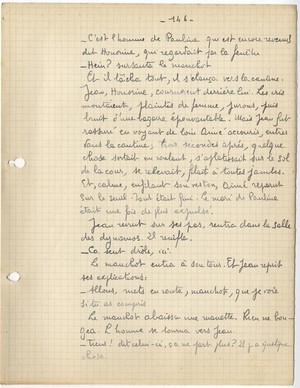 - 146 -
_ C'est l'homme de Pauline qui est encore revenu
dit Honorine, qui regardait par la fenêtre
_ Hein? sursauta le manchot
Et il lâcha tout, il s'élança vers la cantine.
Jean, Honorine, coururent derrière lui. Des cris
montaient, plaintes de femme, jurons, puis
bruit d'une bagarre épouvantable. Mais Jean fut
rassuré en voyant de loin Aimé accourir, entrer
dans la cantine, trois secondes après, quelque
chose sortait en voulant, s'aplatissait sur le sol
de la cour, se relevait, filait à toutes jambes.
Et, calme, enfilant son veston, Aimé reparut
sur le seuil. Tout était fini. Le mari de Pauline
était une fois de plus expulsé.
Jean revint sur ses pas, rentra dans la salle
des dynamos. Il renifla.
_ Ça sent drôle, ici!
Le manchot entra à son tour. Et Jean reprit
ses explications:
_ Allons, mets en route, manchot, que je voie
si tu as compris
Le manchot abaissa une manette. Rien ne bou-
gea. L'homme se tourna vers Jean.
_ Tiens! dit celui-ci, ça ne part plus? Il y a quelque
chose.